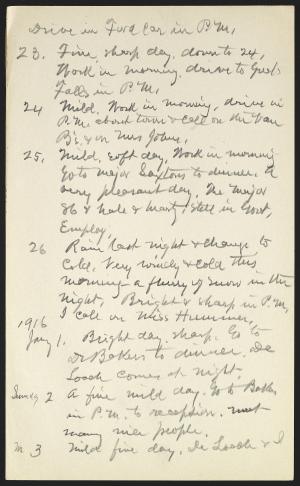 Drive in Ford car in P.M.
23. Fine, sharp day, down to 24,
Work in morning, drive to Great
Falls in P.M.
24 Mild. Work in morning, drive in
P.M. about town & call on the Van
B's, & on Miss Johns.
25. Mild, soft day, Work in morning
Go to major Saxtons to dinner. A
very pleasant day. The major
86 & hale & hearty, still in Govt,
Employ.
26 Rain last night & change to
cold. Very windy & cold this
morning a flurry of snow in the
night. Bright & sharp in P.M.
I call on Miss Hummer,
1916
Jany 1. Bright day, sharp. Go to
Dr Bakers to dinner. De
Loach comes at night.
Sunday 2 A fine mild day. Go to Bakers
in P.M. to reception. meet
many nice people.
M. 3 Mild fine day. De Loach & I